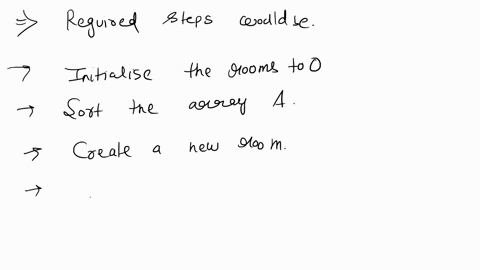 ⇒ Required steps would be.
→ Initialise the rooms to 0
→ Sort the array A.
→ Create a new room.
→